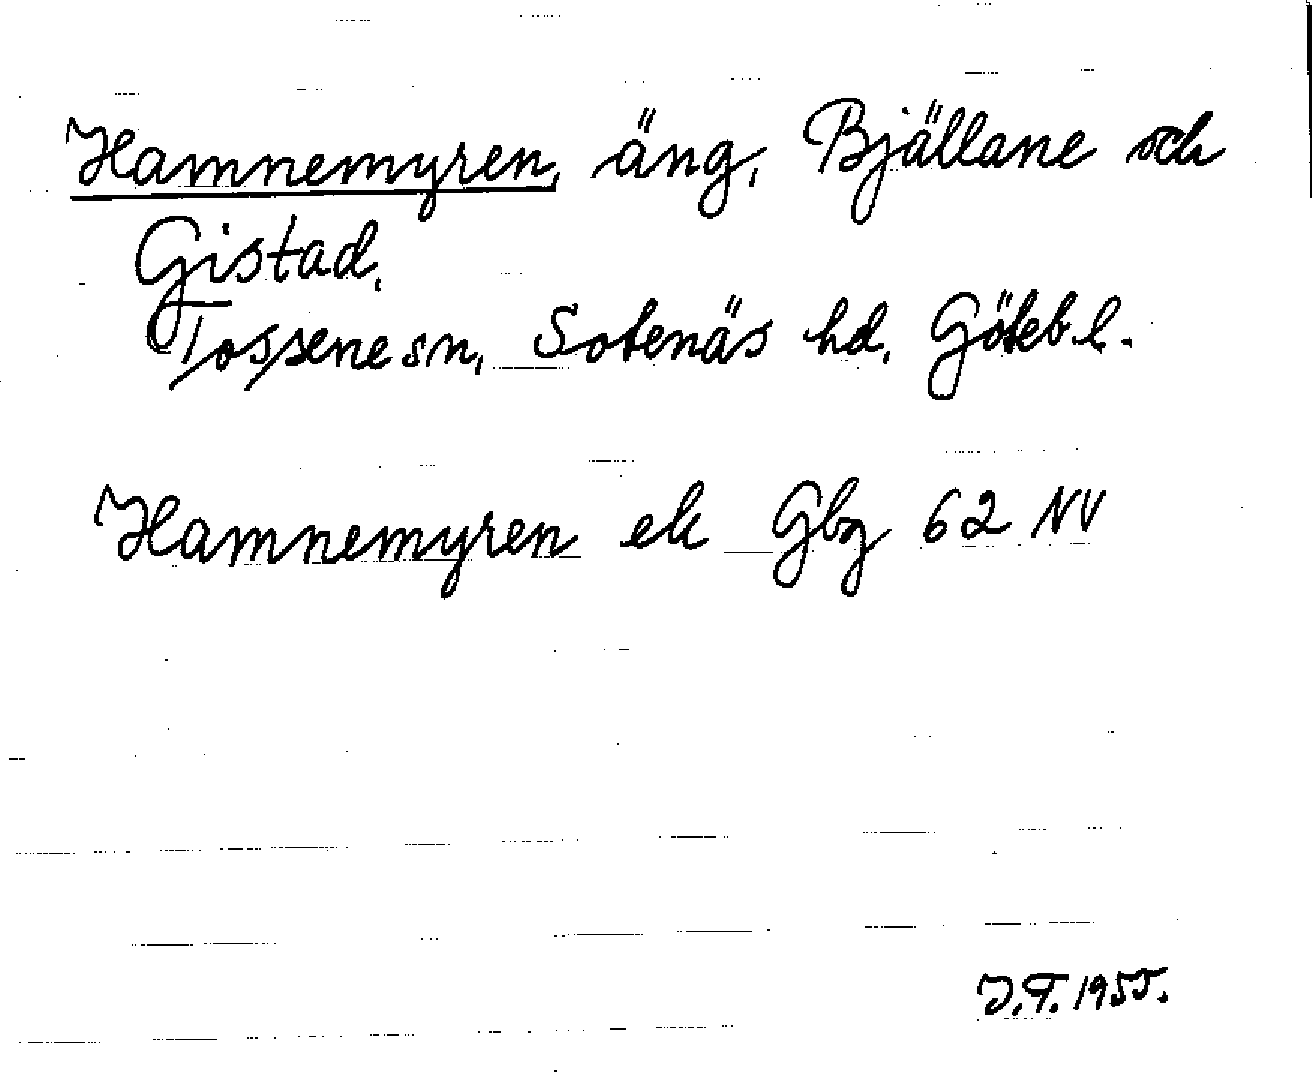 Hamnemyren, äng, Bjällane och
Gistad,
Tossene sn, Sotenäs hd, Göteb. l.
Hamnemyren ek Gbg 62 NV
J.T. 1955.